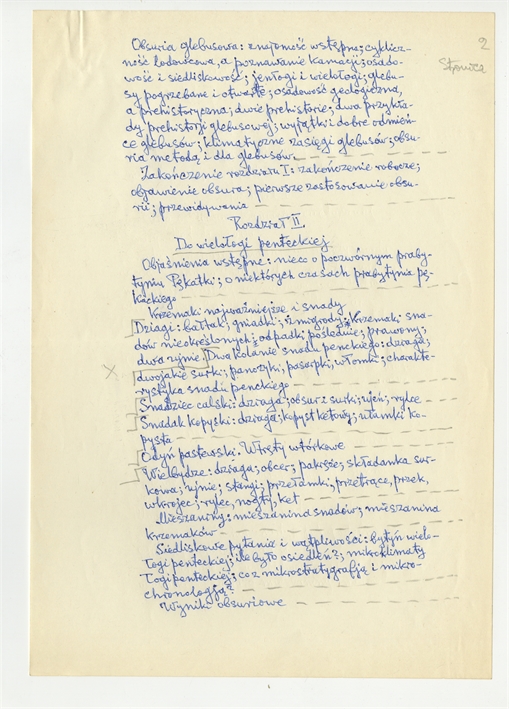 2
Słowica
Obsuria glebusowa: znajomość wstępna; cyklicz-
ność lodowcowa, a poznawanie kamacji; osado-
wość i siedliskowość; jenłogi i wielołogi; glebu-
sy pogrzebane i otwarte; osadowość geologiczna,
a prehistoryczna; dwie prehistorie; dwa przykła-
dy prehistorji glebusowej; wyjątki i dobre odmień-
ce glebusów; klimatyczne zasięgi glebusów; obsu-
ria metodą i dla glebusów.
Zakończenie rozdziału I: zakończenie robocze;
objawienie obsura; pierwsze zastosowanie obsu-
rii; przewidywania
Rozdział II
Do wielołogi penteckiej
Objaśnienia wstępne: nieco o poczwórnym praby-
tyniu Pękatki; o niektórych czasach prabytynia pę-
kackiego
Krzemaki najważniejsze i snady
Dziagi: bałtak, gniadki; żmigrody; krzemaki sna-
dów nieokreślonych; odpadki poślednie; prawony;
dwa ryjnie. Dwa kolanie snadu penckiego: dzraga;
dwojakie surki; panczyki; pasorpki; włomki; charakte-
rystyka snadu penckiego
Snadziec calski: dzraga; obsur z surki; ryjeń; rylce
Snadak kopyski: dzraga; kopyst ketowy; ułamki ko-
pysta
Odyń pasłewski. Wtręty wtórkowe
Wielbądze: dzraga; obcer; pakręże; składanka sur-
kowa; ryjnie; stanaj; przełamki, przetrące, przek,
wkrojec; rylec, nogty, ket
Mieszaniny: mieszanina snadów; mieszanina
krzemaków
Siedliskowe pytania i wątpliwości: bytyń wielo-
łogi penteckiej; ile było osiedleń?; mikroklimaty
łogi penteckiej; co z mikrostratygrafją i mikro-
chronologją?
Wyniki obsuriowe